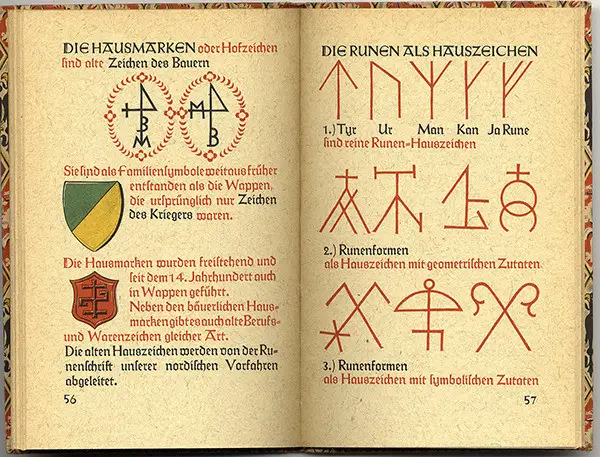 DIE HAUSMARKEN oder Hofzeichen
sind alte Zeichen des Bauern
B
M
M
B
Sie sind als Familiensymbole weitaus früher
entstanden als die Wappen,
die ursprünglich nur Zeichen
des Kriegers waren.
Die Hausmarken wurden freistehend und
seit dem 14. Jahrhundert auch
in Wappen geführt.
Neben den bäuerlichen Haus-
marken gibt es auch alte Berufs-
und Warenzeichen gleicher Art.
Die alten Hauszeichen werden von der Ru-
nenschrift unserer nordischen Vorfahren
abgeleitet.
56
DIE RUNEN ALS HAUSZEICHEN
1.) Tyr Ur Man Kan Ja Rune
sind reine Runen-Hauszeichen
2.) Runenformen
als Hauszeichen mit geometrischen Zutaten
3.) Runenformen
als Hauszeichen mit symbolischen Zutaten
57